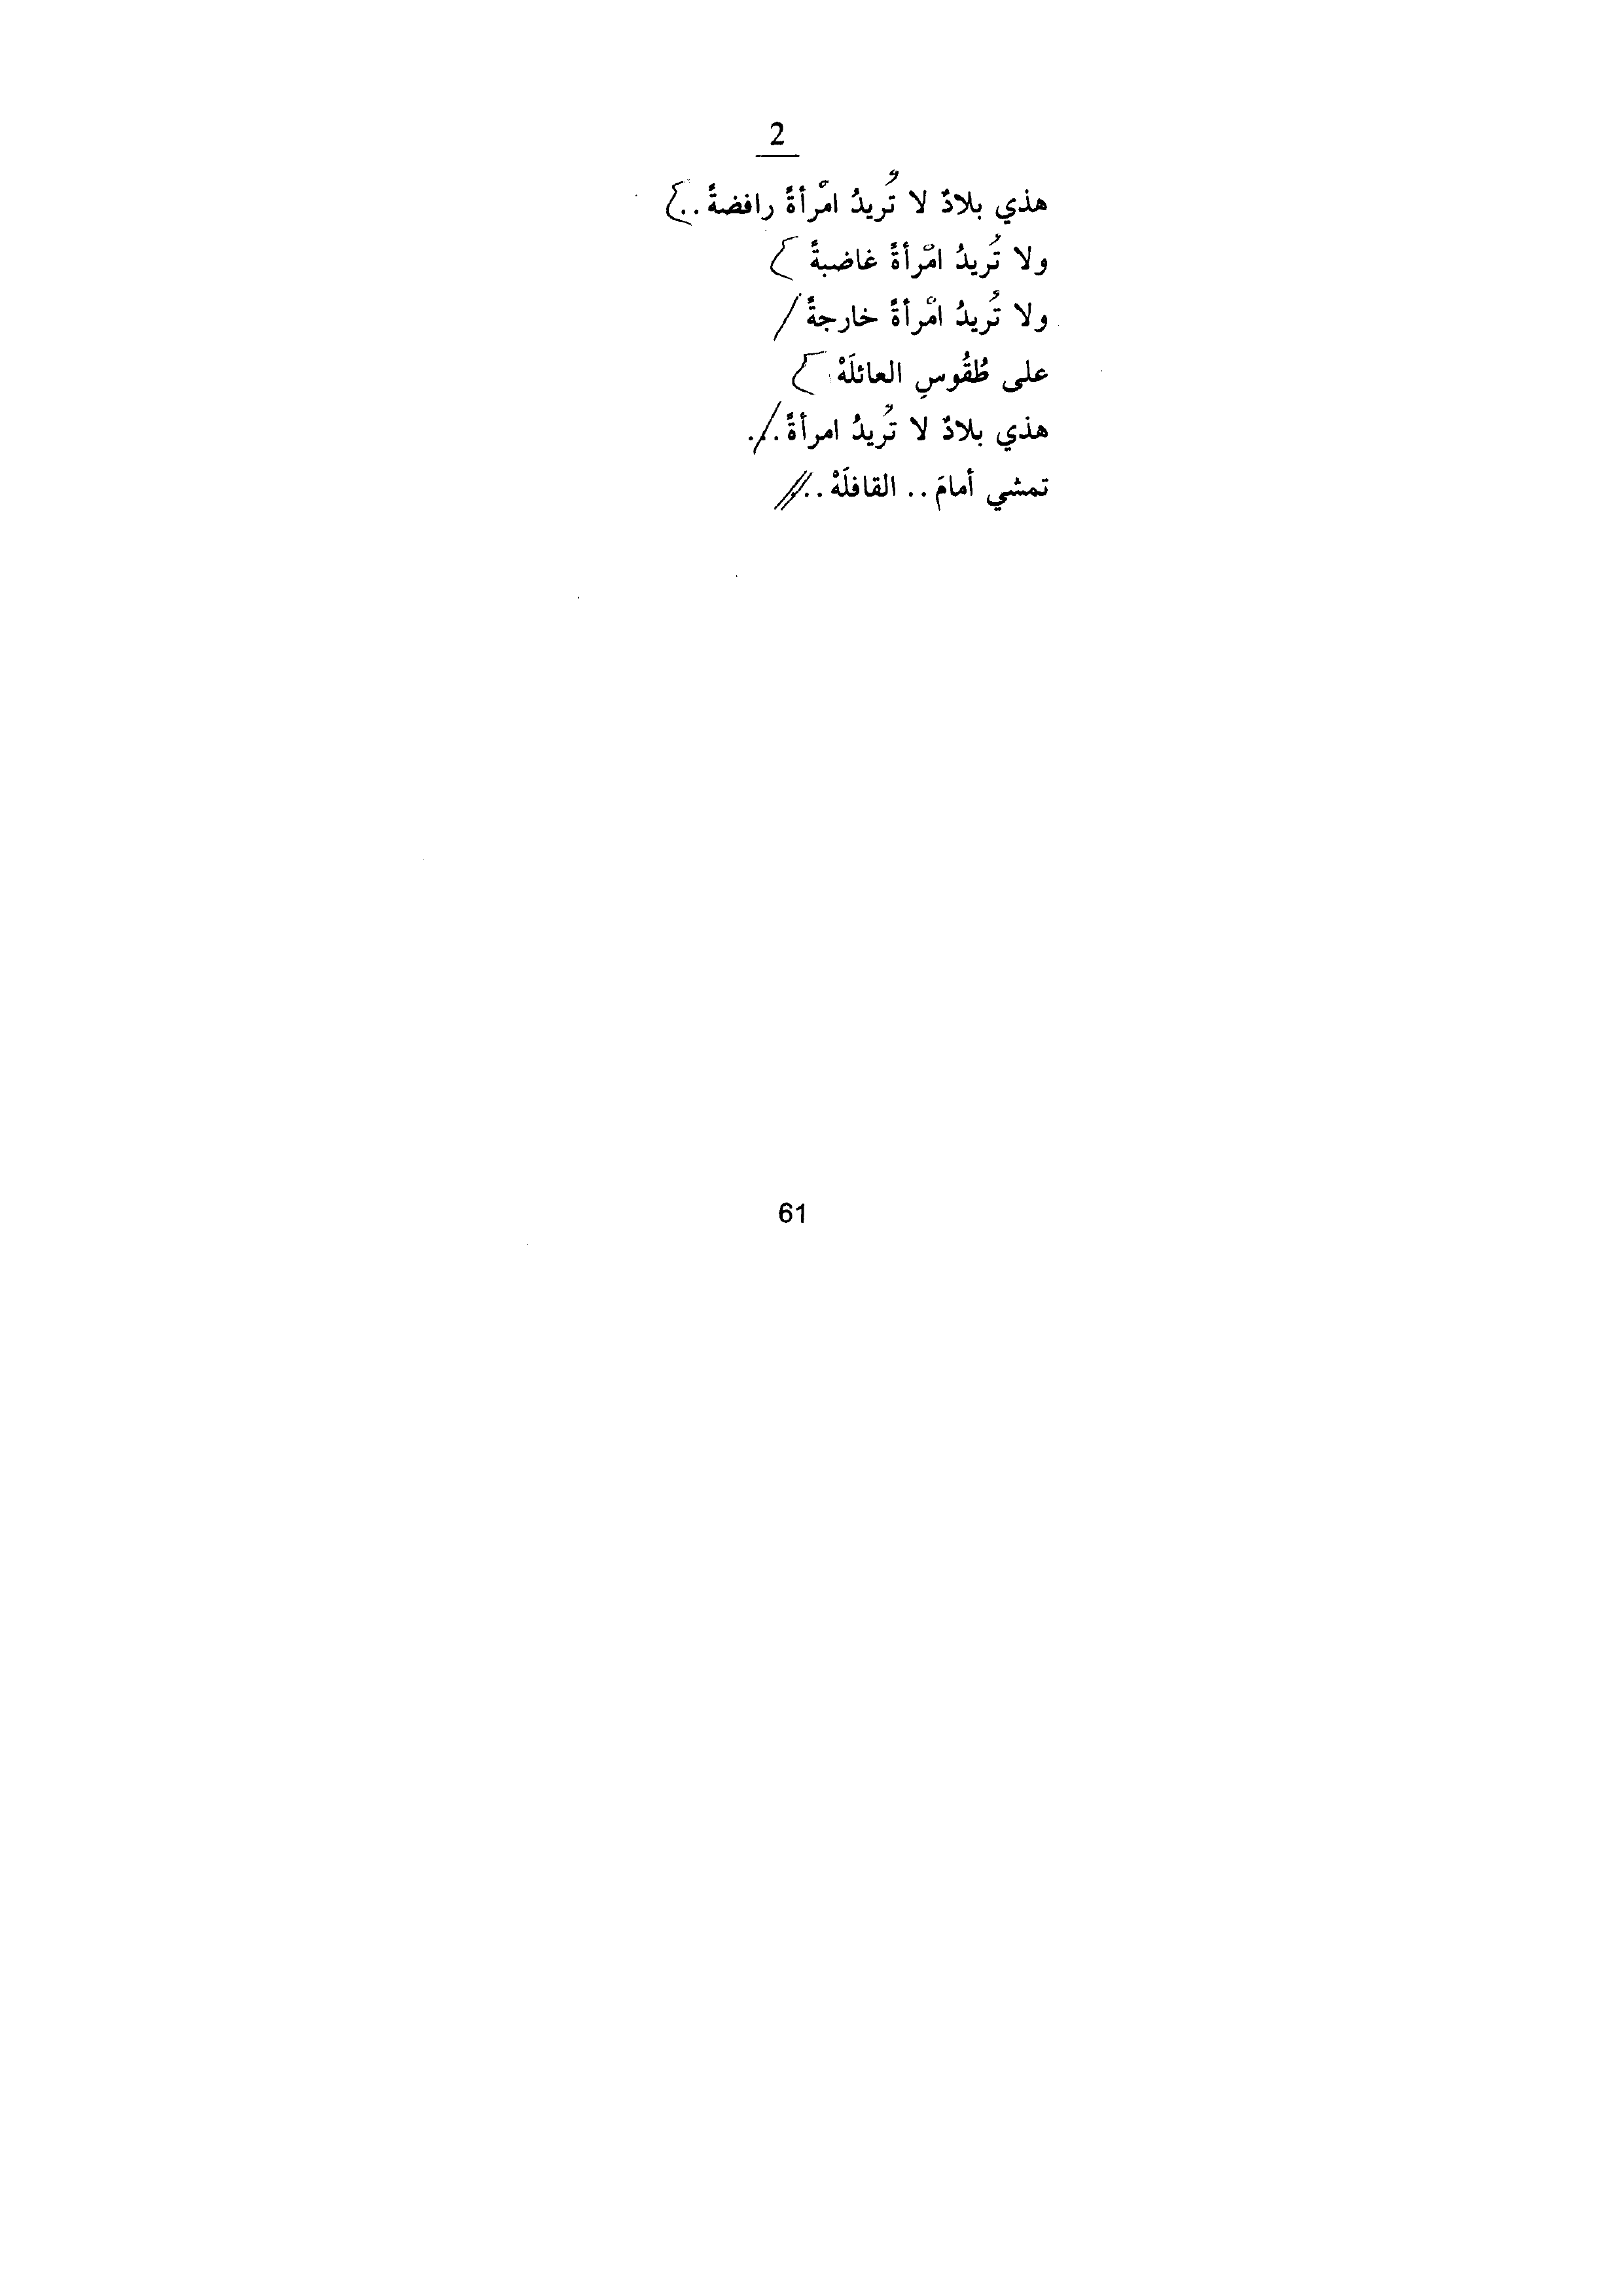 2
هذي بلادٌ لا تُريدُ امْرأةً رافضةً ..
ولا تُريدُ امْرأةً غاضبةً
ولا تُريدُ امْرأةً خارجةً
على طُقُوسِ العائلَهْ
هذي بلادٌ لا تُريدُ امرأةً ..
تمشي أمامَ .. القافلَهْ ..
61